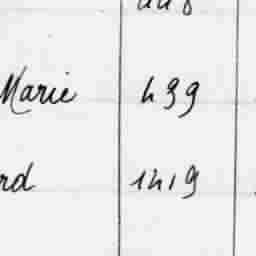 Marie 499
rd 1419